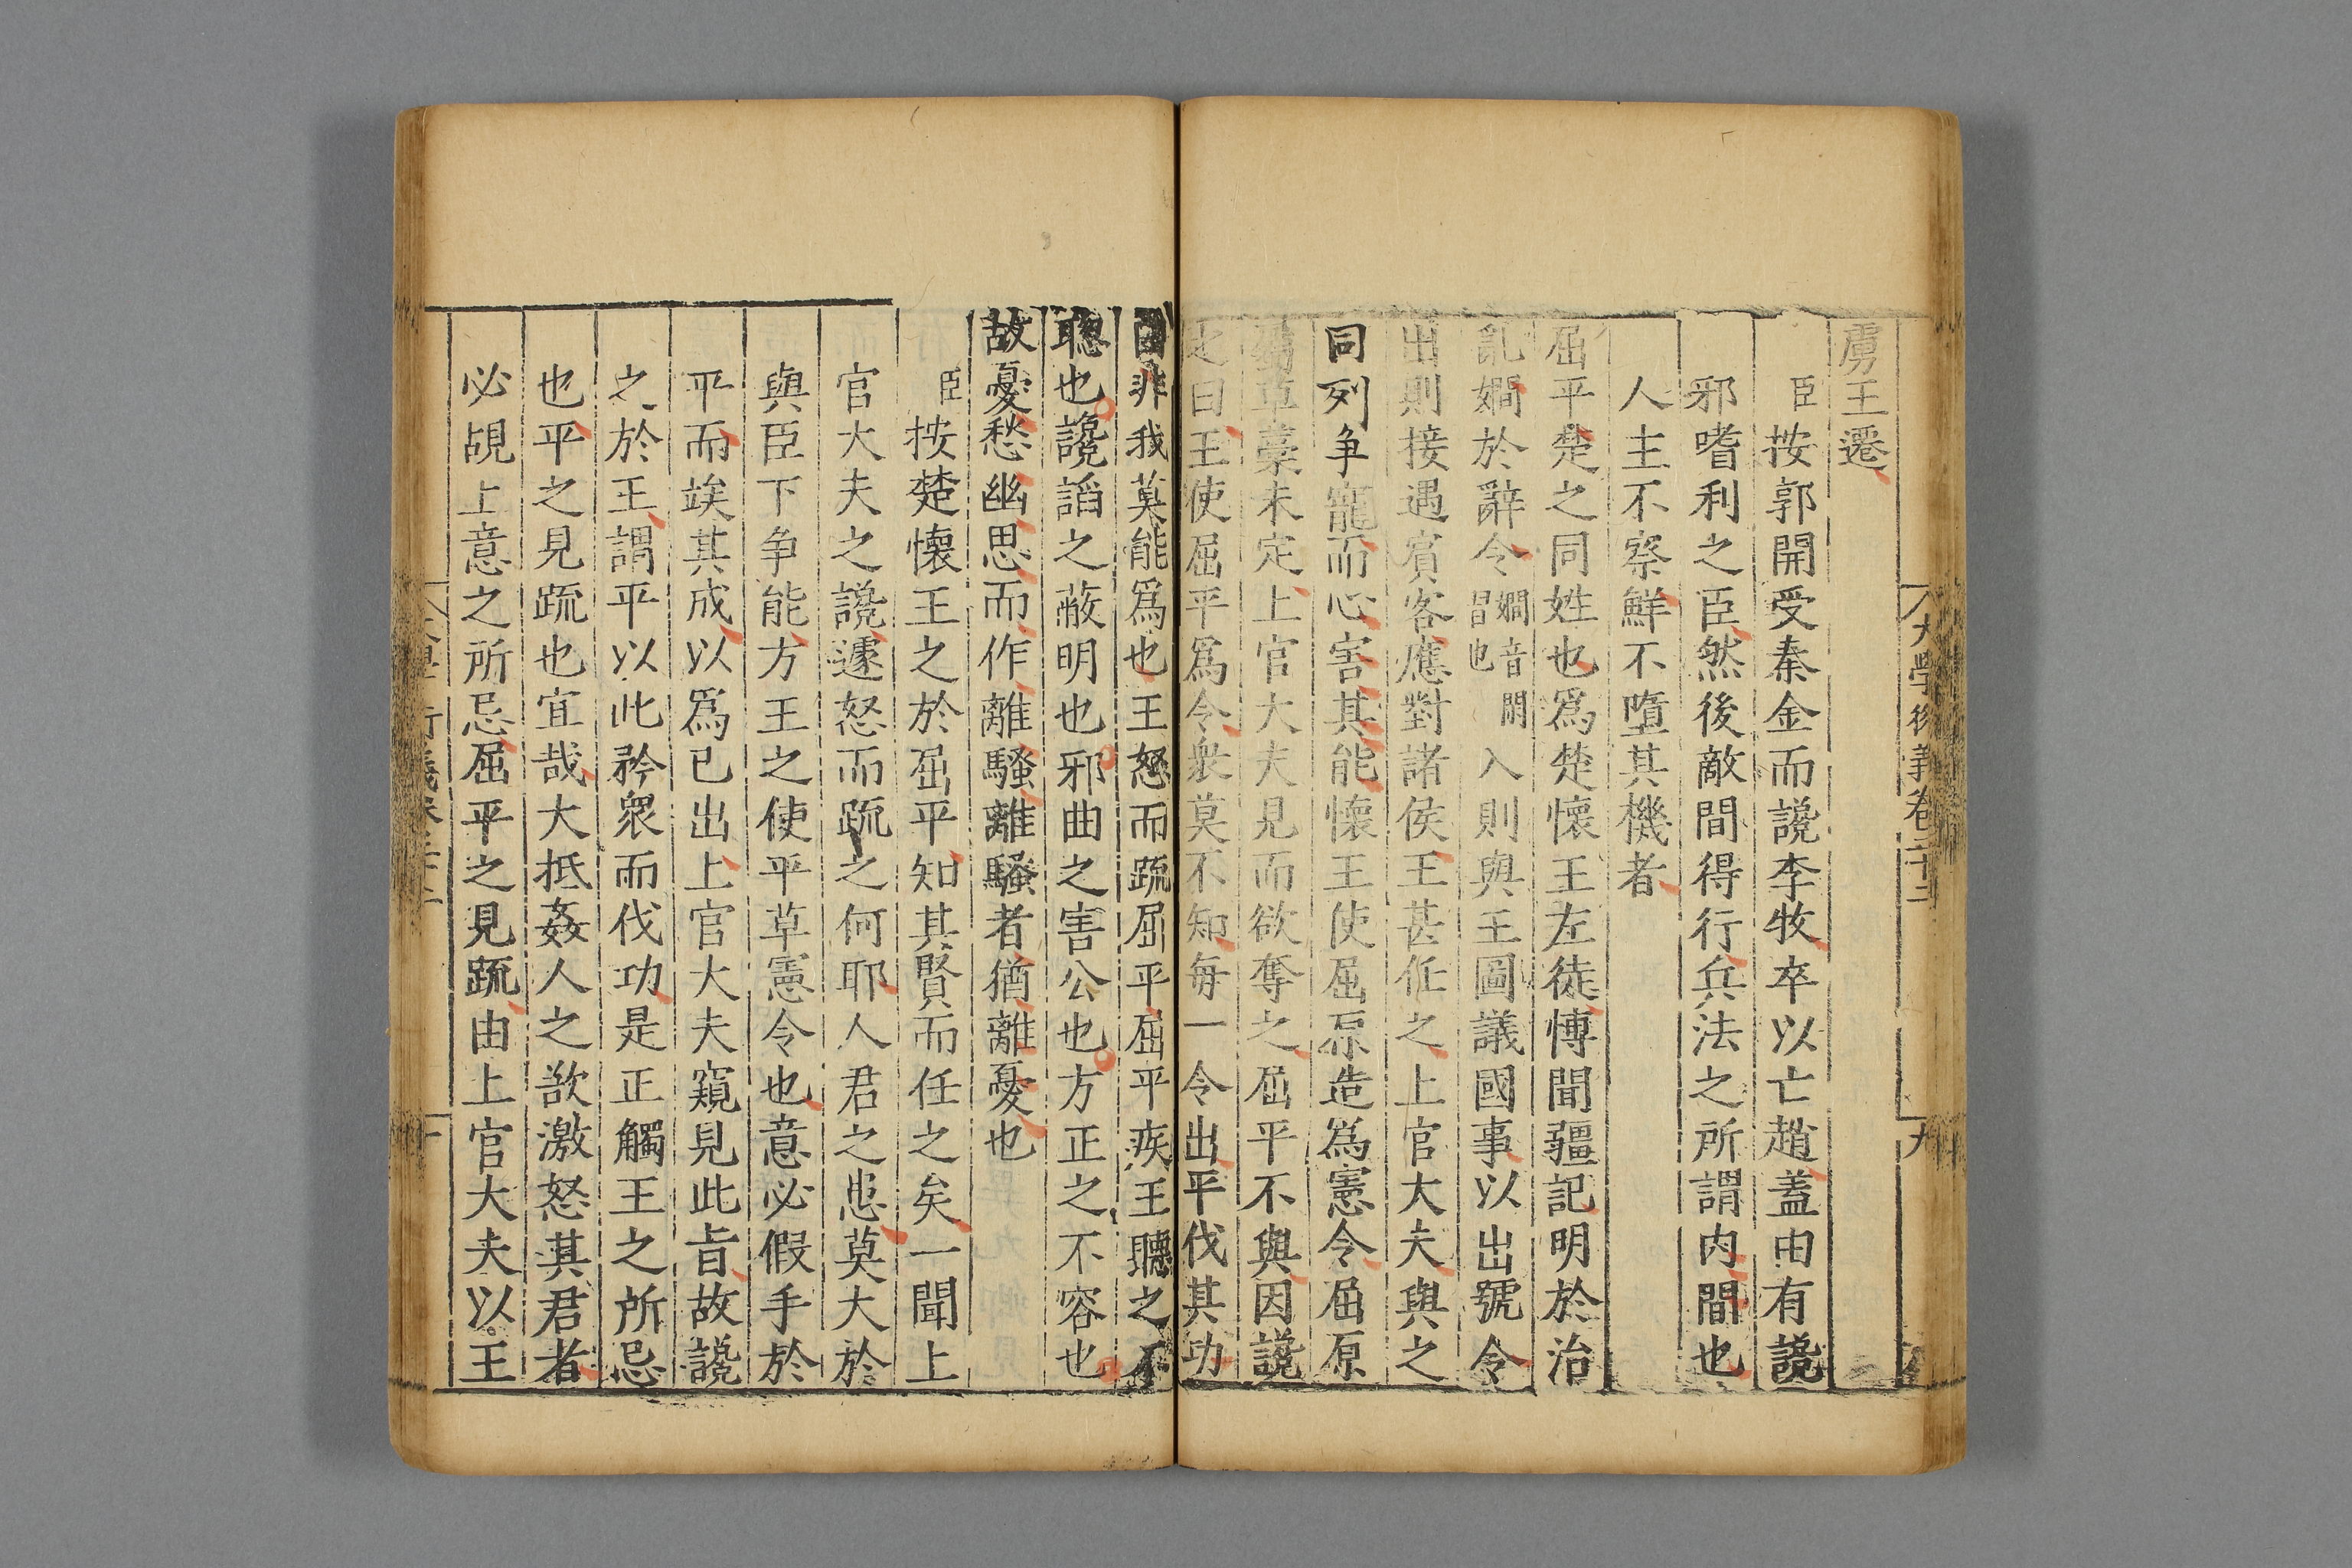 大學衍義卷二十二
九
虜王遷
臣按郭開受秦金而讒李牧卒以亡趙蓋由有讒
邪嗜利之臣然後敵間得行兵法之所謂内間也
人主不察鮮不墮其機者
屈平楚之同姓也爲楚懷王左徒愽聞彊記明於治
亂嫺於辭令嫺音閒習也入則與王圖議國事以出號令
出則接遇賓客應對諸侯王甚任之上官大夫與之
同列争寵而心害其能懷王使屈原造爲憲令屈原
屬草藁未定上官大夫見而欲奪之屈平不與因讒
之曰王使屈平爲令衆莫不知每一令出平伐其功
曰非我莫能爲也王怒而疏屈平屈平疾王聽之不
聰也讒謟之蔽明也邪曲之害公也方正之不容也
故憂愁幽思而作離騷離騷者猶離憂也
臣按楚懷王之於屈平知其賢而任之矣一聞上
官大夫之讒遽怒而疏之何耶人君之患莫大於
與臣下争能方王之使平草憲令也意必假手於
平而竢其成以爲已出上官大夫窺見此旨故讒
之於王謂平以此矜衆而伐功是正觸王之所忌
也平之見疏也宜哉大抵姦人之欲激怒其君者
必覘上意之所忌屈平之見疏由上官大夫以王